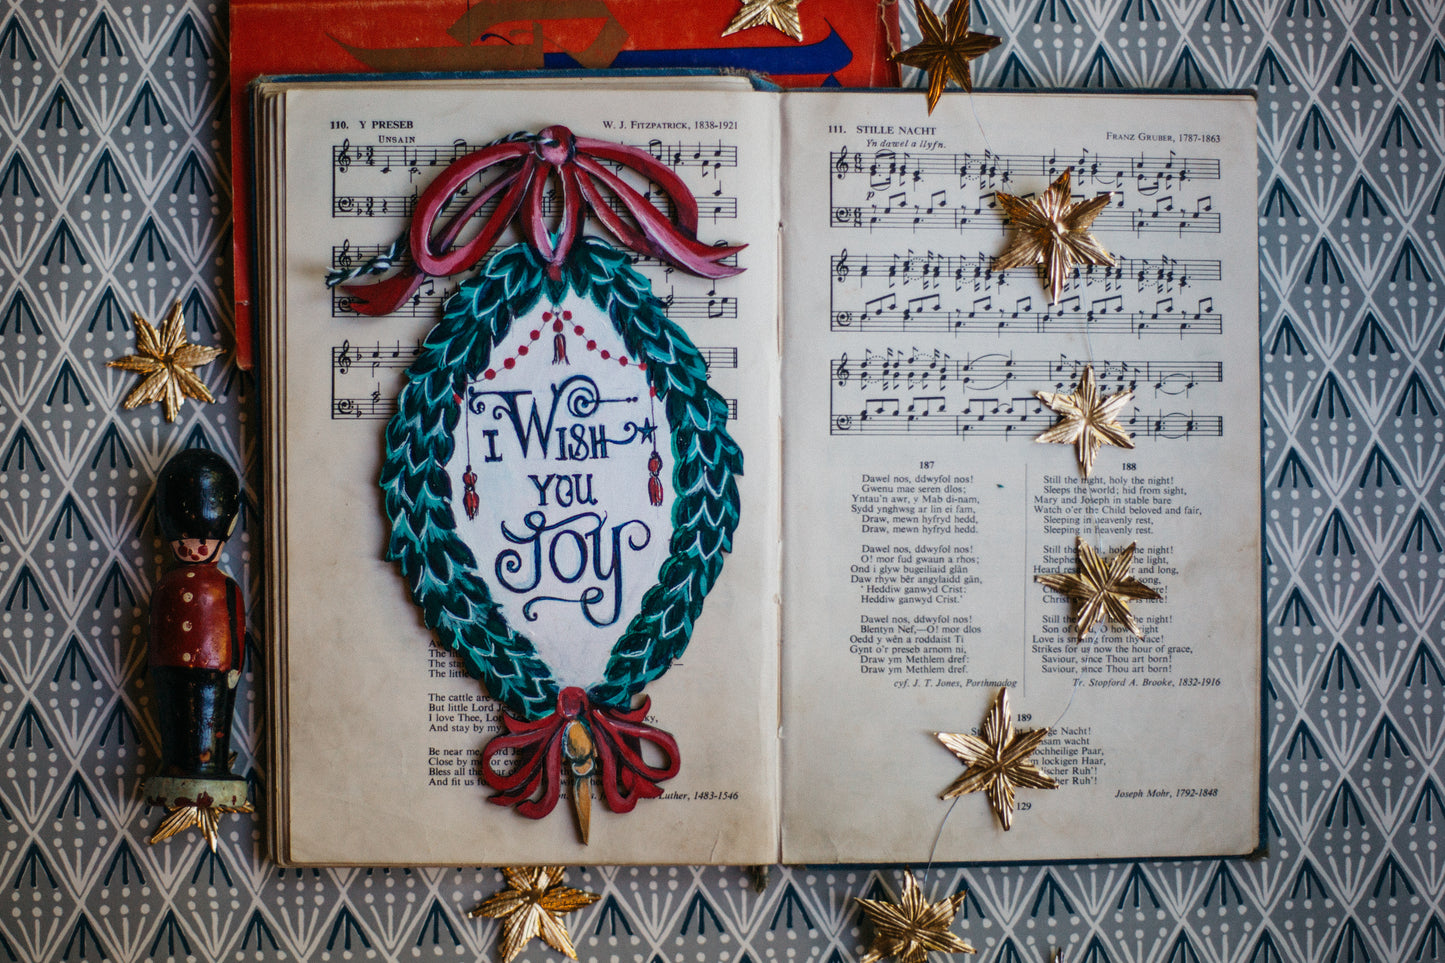 110. Y PRESEB
W. J. FITZPATRICK, 1838-1921
UNSAIN
I WISH
YOU
JOY
The
The star
The little
The cattle are
But little Lord Jes
I love Thee, Lor
And stay by my
ky,
Be near me, Lord Je
Close by me for eve
Bless all the
And fit us fo
Luther, 1483-1546
111. STILLE NACHT
FRANZ GRUBER, 1787-1863
Yn dawel a llyfn.
p
187
Dawel nos, ddwyfol nos!
Gwenu mae seren dlos;
Yntau'n awr, y Mab di-nam,
Sydd ynghwsg ar lin ei fam,
Draw, mewn hyfryd hedd,
Draw, mewn hyfryd hedd.
Dawel nos, ddwyfol nos!
O! mor fud gwaun a rhos;
Ond i glyw bugeiliaid glân
Daw rhyw bêr angylaidd gân,
‘Heddiw ganwyd Crist:
Heddiw ganwyd Crist.’
Dawel nos, ddwyfol nos!
Blentyn Nef,—O! mor dlos
Oedd y wên a roddaist Ti
Gynt o'r preseb arnom ni,
Draw ym Methlem dref:
Draw ym Methlem dref.
cyf. J. T. Jones, Porthmadog
188
Still the night, holy the night!
Sleeps the world; hid from sight,
Mary and Joseph in stable bare
Watch o'er the Child beloved and fair,
Sleeping in heavenly rest,
Sleeping in heavenly rest.
Still the night, holy the night!
Shepher the light,
Heard res r and long,
song,
Ch here!
Christ is here!
Still the night, holy the night!
Son of God, O how bright
Love is smiling from thy face!
Strikes for us now the hour of grace,
Saviour, since Thou art born!
Saviour, since Thou art born!
Tr. Stopford A. Brooke, 1832-1916
189
ge Nacht!
nsam wacht
ochheilige Paar,
n lockigen Haar,
lischer Ruh'!
cher Ruh'!
Joseph Mohr, 1792-1848
129